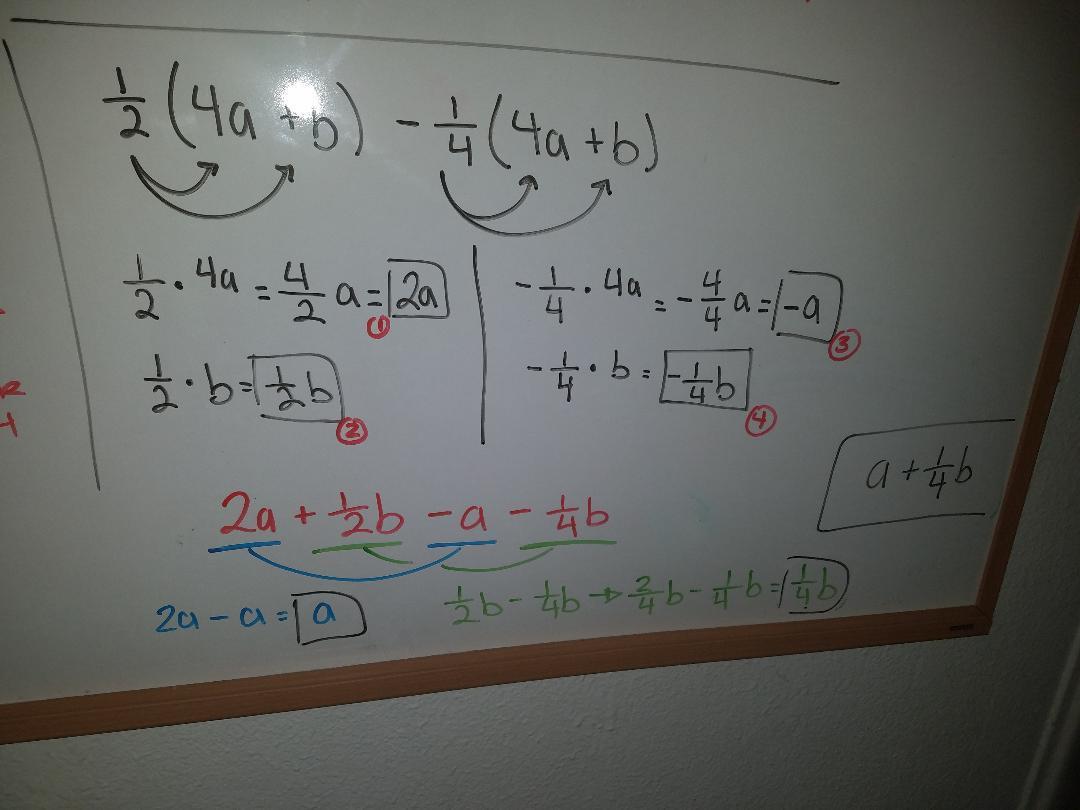 1/2 (4a + b) - 1/4 (4a + b)
1/2 · 4a = 4/2 a = 2a ①
1/2 · b = 1/2 b ②
- 1/4 · 4a = - 4/4 a = -a ③
- 1/4 · b = - 1/4 b ④
2a + 1/2 b - a - 1/4 b
2a - a = a
1/2 b - 1/4 b → 2/4 b - 1/4 b = 1/4 b
a + 1/4 b